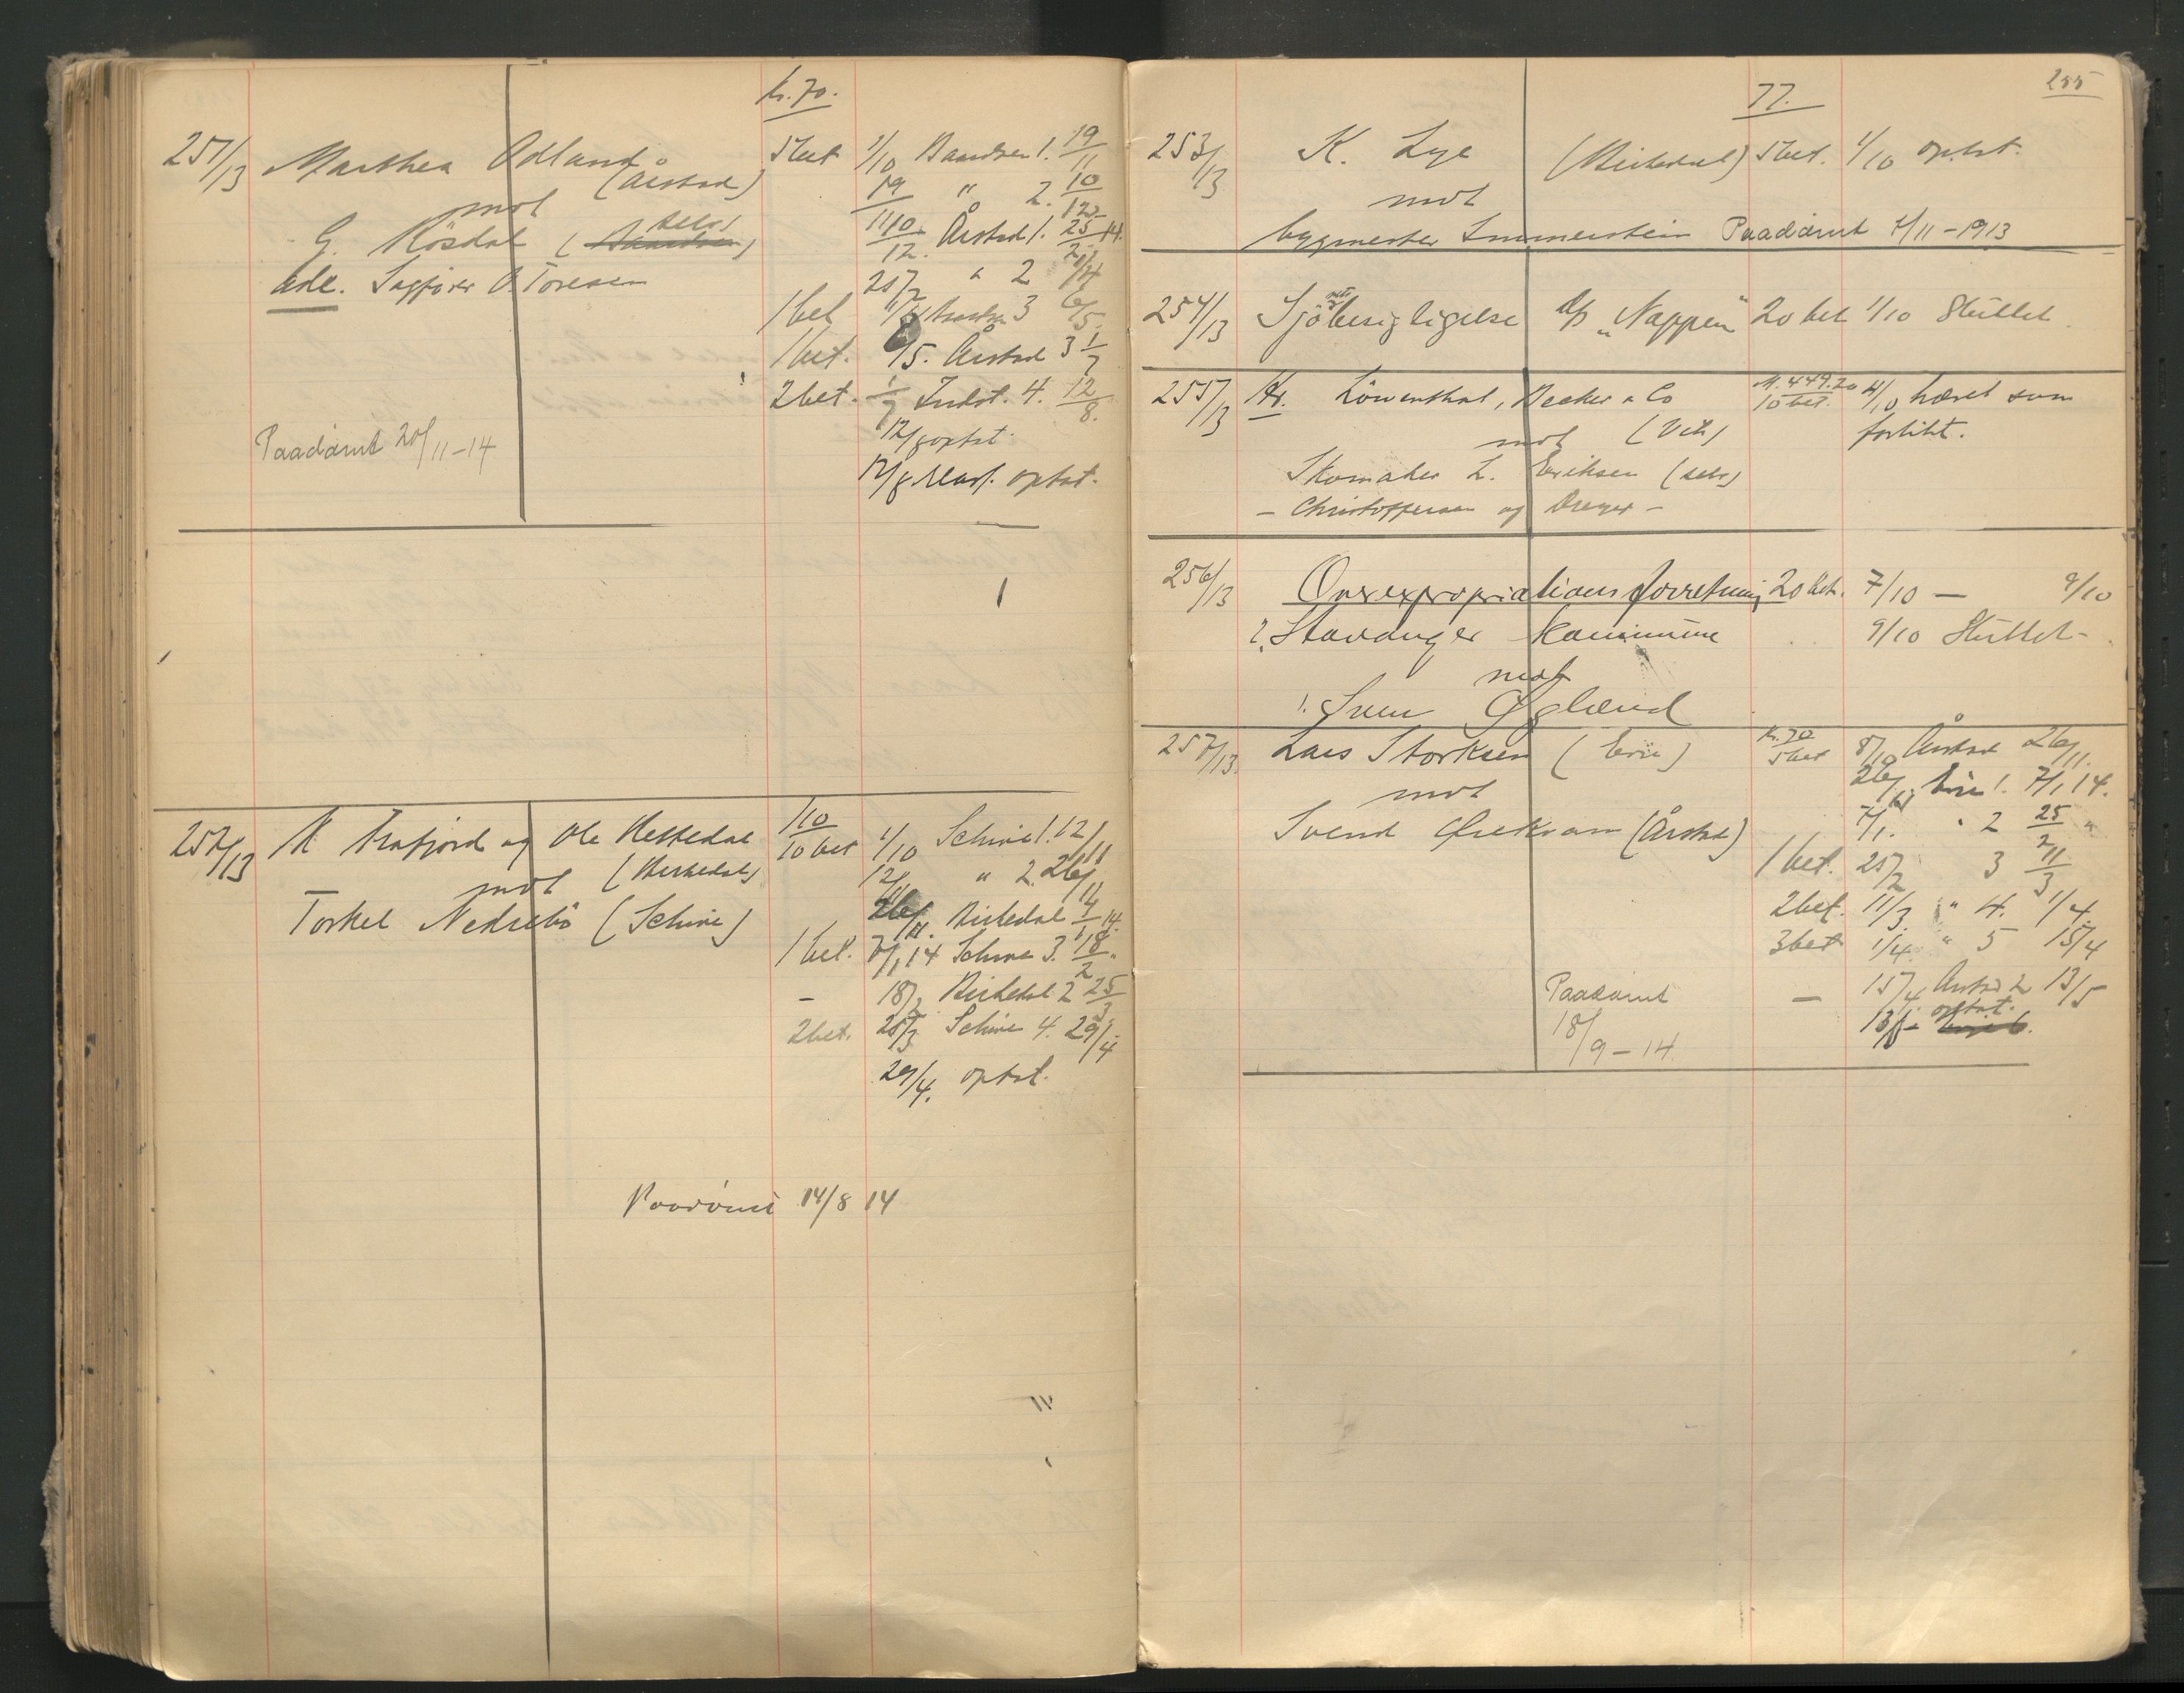 kr. 70.
251/13 Marthea Ådland (Årstad) 5 bet 1/10 Baardsen 1. 19/11
mot 19/11 " 2. 10/12
G. Rösdal (selv) 10/12 Årstad 1. 25/2 14.
adc. Sagfører O. Toresen 25/2 " 2
1 bet 3 6/5
1 bet. 6/5. Årstad 3 1/7
2 bet. 1/7 Indst. 4. 12/8.
Paadömt 20/11-14 12/8 optat.
12/8 optat.
252/13 Ole Herkedal 110 10 bet 1/10 Schive 1. 12/11
mot 12/11 " 2. 26/11
Torkel Nedrebö (Schive) 26/11. Birkedal 7/1 14.
1 bet. 7/1 14 Schive 3. 18/2 "
- 18/2 Birkedal 2 25/3
2 bet. 25/3 Schive 4. 29/4
29/4. optat.
Paadömt 14/8 14
255
77.
253/13 K. Lye (Birkedal) 5 bet. 1/10 optat.
mot
bygmester Immerstein Paadömt 7/11-1913
254/13 Sjöbesigtigelse D/S "Nappen" 20 bet 1/10 Sluttet
255/13 Kr. Löwenthal, Becker & Co M. 449.20 10 bet. 4/10 hævet som
mot (Vik) forlikt.
Skomaker L. Eriksen (selv)
- Christoffersen og Dreyer -
256/13 Overexpropriationsforretning 20 bet. 7/10 — 9/10
2. Stavanger Kommune 9/10 Sluttet -
mot
1. Sven Øglænd
257/13 Lars Storksen (Erie) kr. 70 5 bet 8/10 Årstad 26/11.
mot 26/11 Erie 1. 7/1 14.
Svend (Årstad) 7/1. " 2 25/2 "
1 bet. 25/2 3 11/3
2 bet. 11/3. " 4. 1/4.
3 bet 1/4. " 5 15/4
Paadömt - 15/4 Årstad 2 13/5
18/9-14. 13/5 optat.